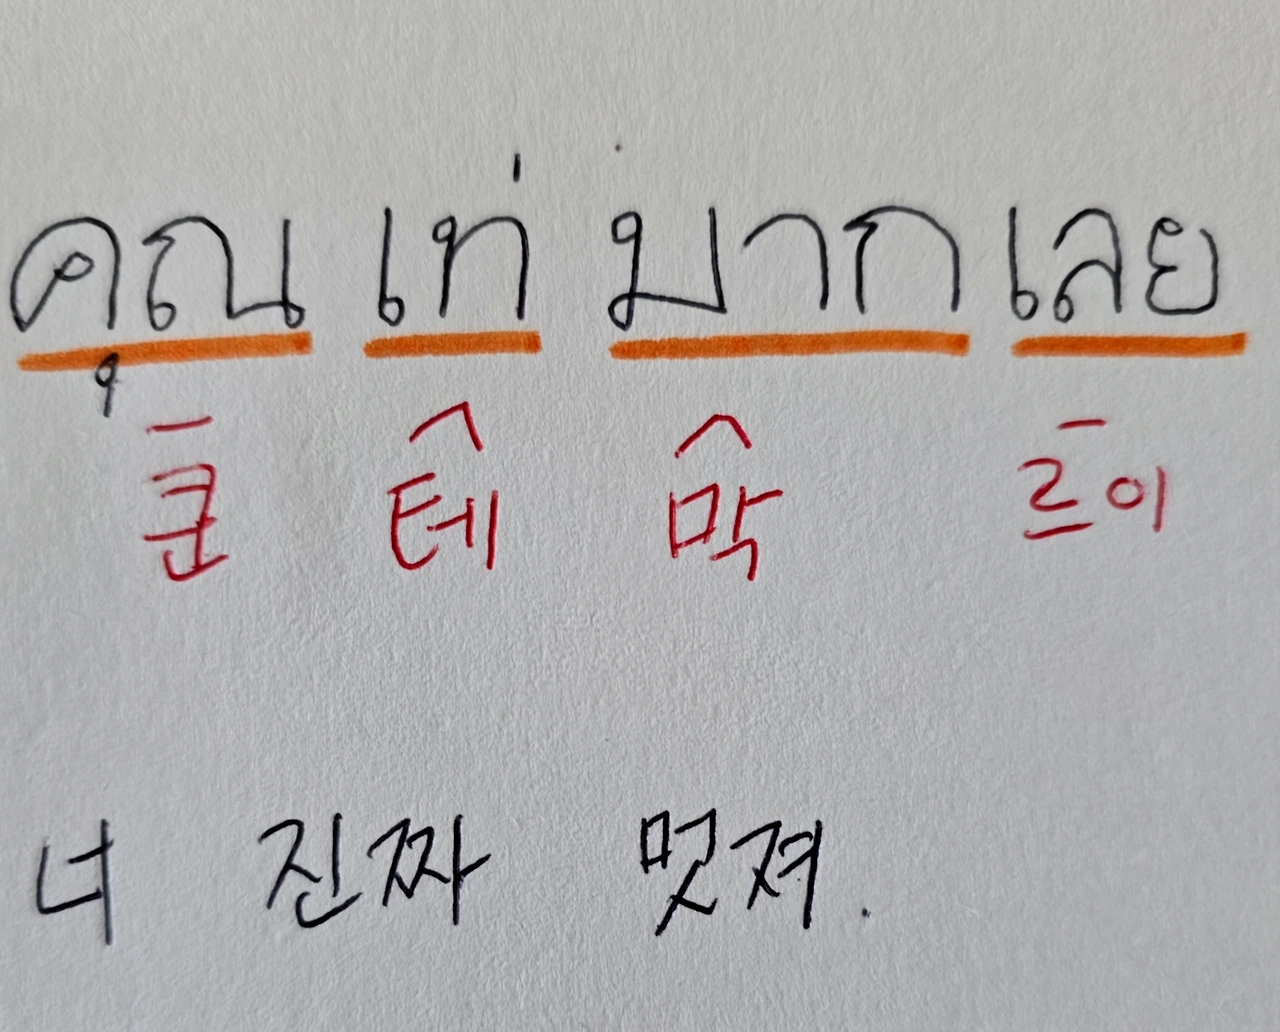 คุณ เท่ มาก เลย
쿤 테 막 르이
너 진짜 멋져.